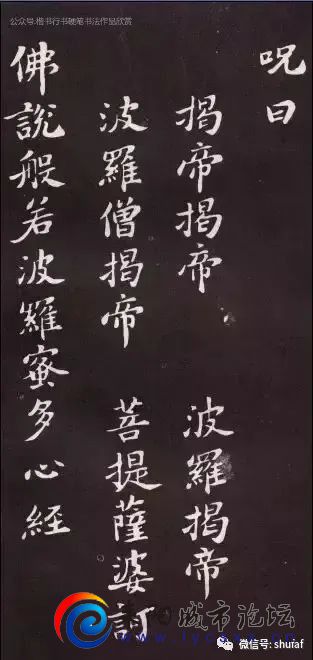 公众号:楷书行书硬笔书法作品欣赏
呪曰
揭帝揭帝　波羅揭帝
波羅僧揭帝　菩提薩婆訶
佛說般若波羅蜜多心經
城市论坛
微信号: shufaf